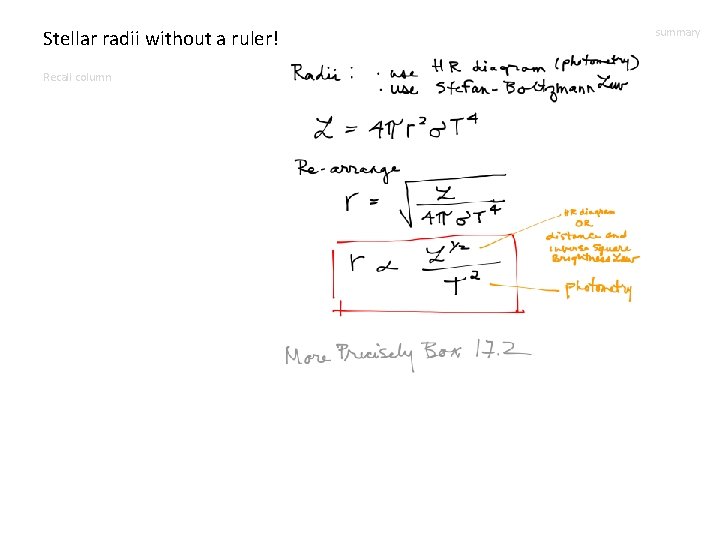 Stellar radii without a ruler!
summary
Recall column
Radii : · use HR diagram (photometry)
· use Stefan-Boltzmann Law
L = 4πr²σT⁴
Re-arrange
r = √(L / 4πσT⁴)
r ∝ L^1/2 / T²
HR diagram
OR
distance and
inverse square
Brightness Law
photometry
More Precisely Box 17.2